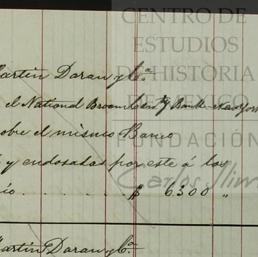 CENTRO DE
ESTUDIOS
DE HISTORIA
DE MÉXICO
FUNDACIÓN
Carlos Slim
Martin Daran y Cía
el National Broom Bank New York
sobre el mismo Banco
y endosadas por este á los
$ 6300 "
Martin Daran y Ca